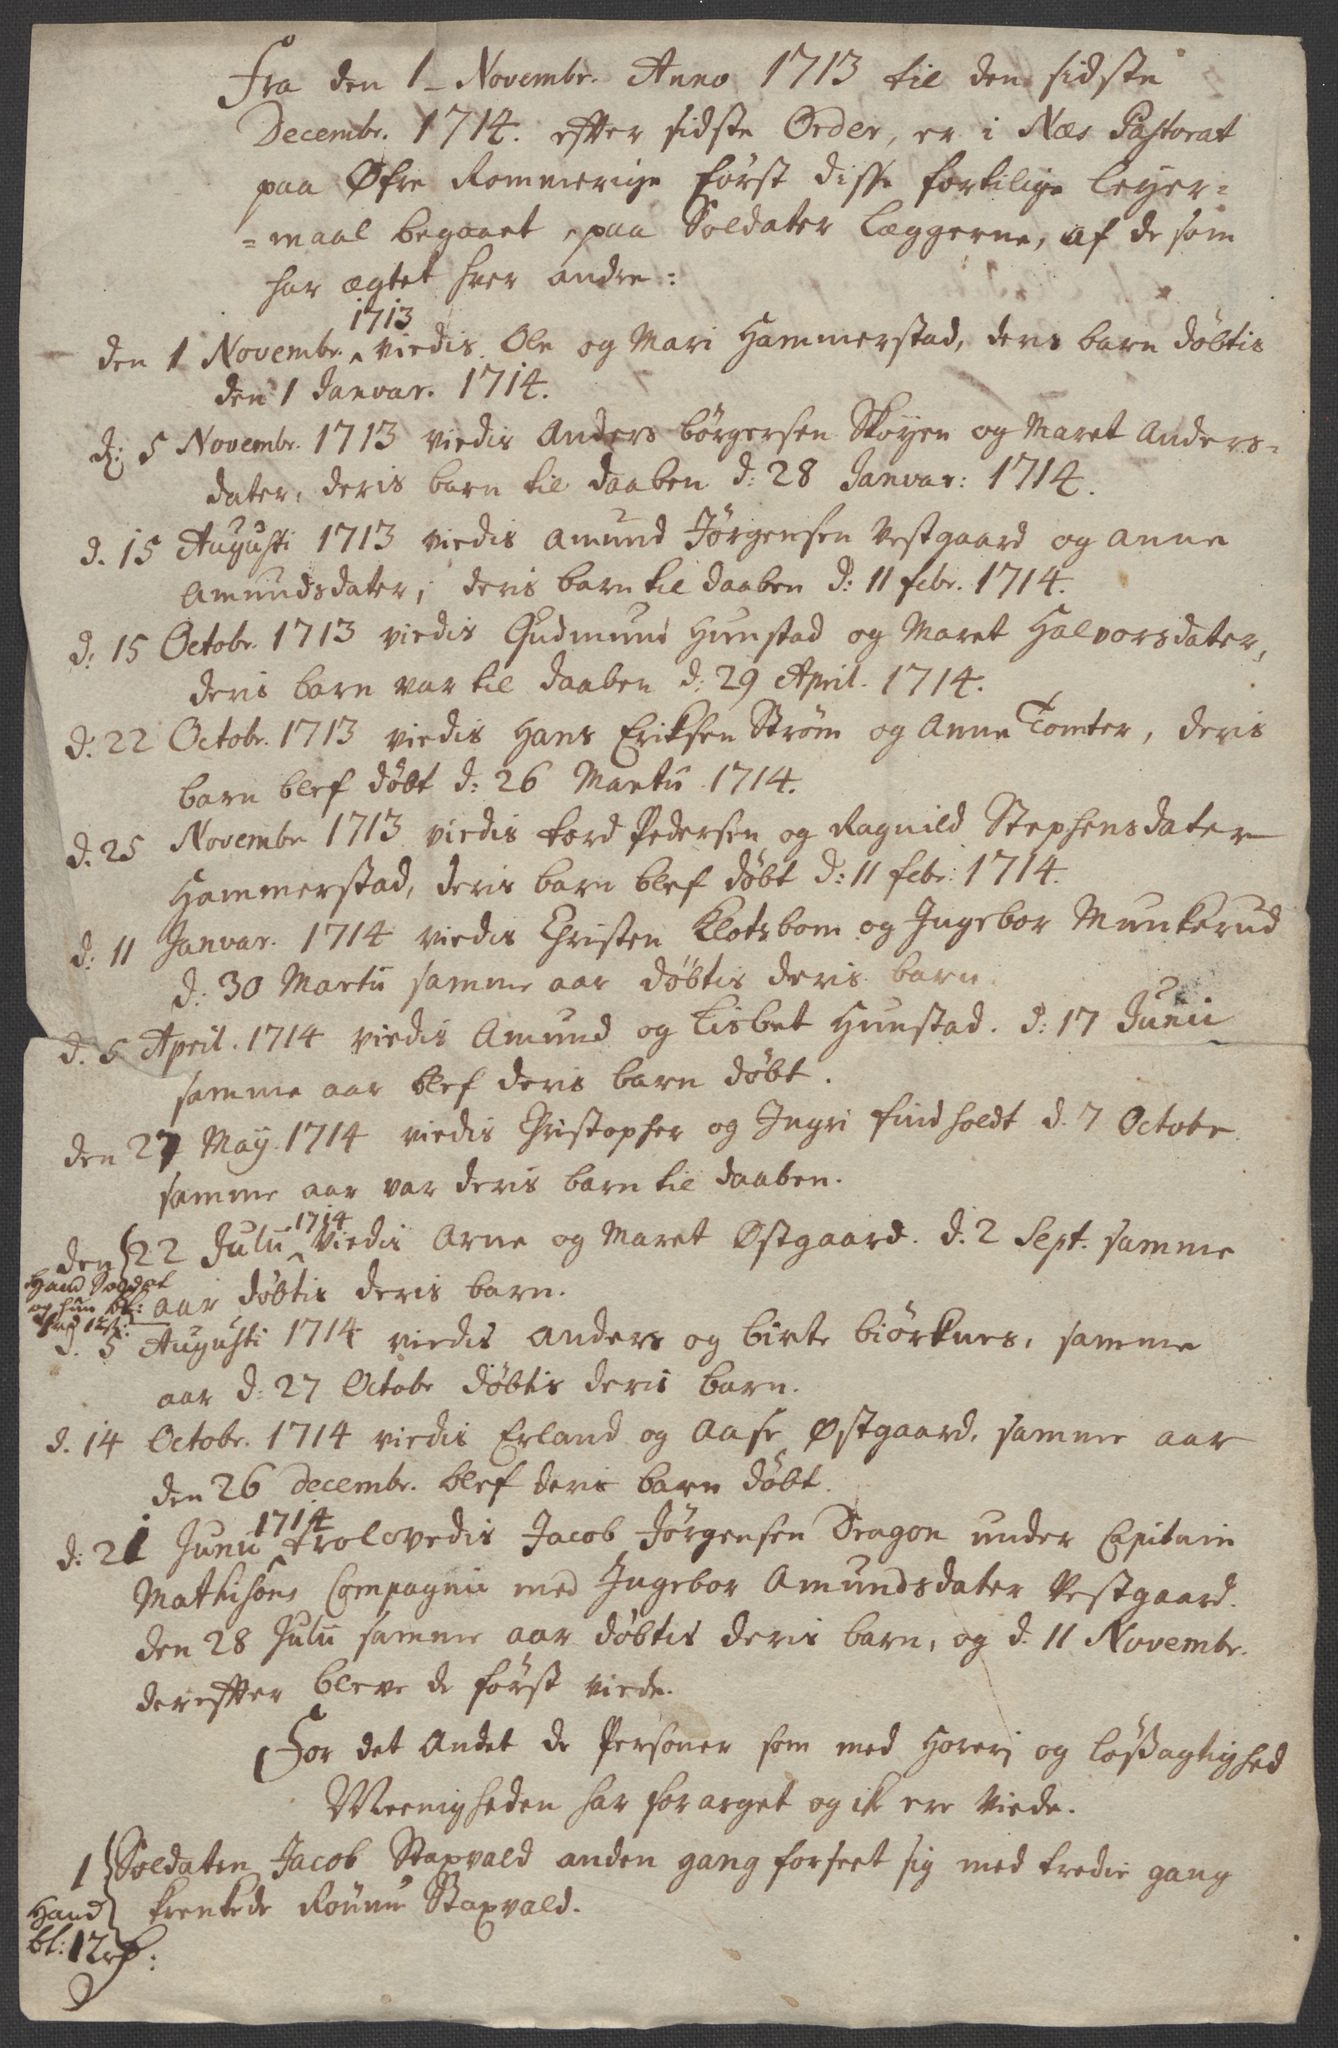 Fra den 1 Novembr. Anno 1713 til den sidste
Decembr. 1714. efter sidste Order, er i Næs Pastorat
paa Øfre Rommerige først disse fortilige Leyer=
=maal begaaet paa Soldater Læggerne, af de som
har ægtet hver andre:
den 1 Novembr. 1713 viedis Ole og Mari Hammerstad, deris barn døbtis
den 1 Janvar. 1714.
d: 5 Novembr. 1713 viedis Anders Børgersen Skøyen og Maret Anders=
dater, deris barn til daaben d: 28 Janvar: 1714.
d. 15 Augusti 1713 viedis Amund Jørgensen Vestgaard og Anne
Amundsdater, deris barn til daaben d: 11 febr. 1714.
d: 15 Octobr. 1713 viedis Gudmund Hunstad og Maret Halvorsdater,
deris barn var til daaben d: 29 April. 1714.
d. 22 Octobr. 1713 viedis Hans Eriksen Strøm og Anne Tomter, deris
barn blef døbt d: 26 Martii 1714.
d. 25 Novembr 1713 viedis Tord Pedersen og Ragnild Stephensdater
Hammerstad, deris barn blef døbt d: 11 febr: 1714.
d: 11 Janvar. 1714 viedis Christen Klotzbom og Ingebor Munkerud
d. 30 Martii samme aar døbtis deris barn.
d. 5 April. 1714 viedis Amund og Lisbet Hunstad. d: 17 Junii
samme aar blef deris barn døbt.
den 27 May. 1714 viedis Christopher og Ingri findholdt d. 7 Octobr
samme aar var deris barn til daaben.
den 22 Julii 1714 viedis Arne og Maret Østgaard. d. 2 Sept. samme
Hand Soldat
og hun bt:
aar døbtis deris barn.
d. 5 Augusti 1714 viedis Anders og birte biørknes, samme
aar d: 27 Octobr døbtis deris barn.
d. 14 Octobr. 1714 viedis Erland og Aase Østgaard, samme aar
den 26 Decembr. blef deris barn døbt.
d: 21 Junii 1714 trolovedis Jacob Jørgensen Dragon under Capitain
Mathisons Compagnii med Ingebor Amundsdater Vestgaard.
den 28 Julii samme aar døbtis deris barn, og d. 11 Novembr.
derefter bleve de først viede.
For det Andet de Personer som med Horerj og løßagtighed
Meenigheden har forarget og ik ere Viede.
1 Soldaten Jacob Stapvald anden gang forseet sig med tredie gang
krenkede Rønnu Stapvald.
Hand
bt: 12 rd: